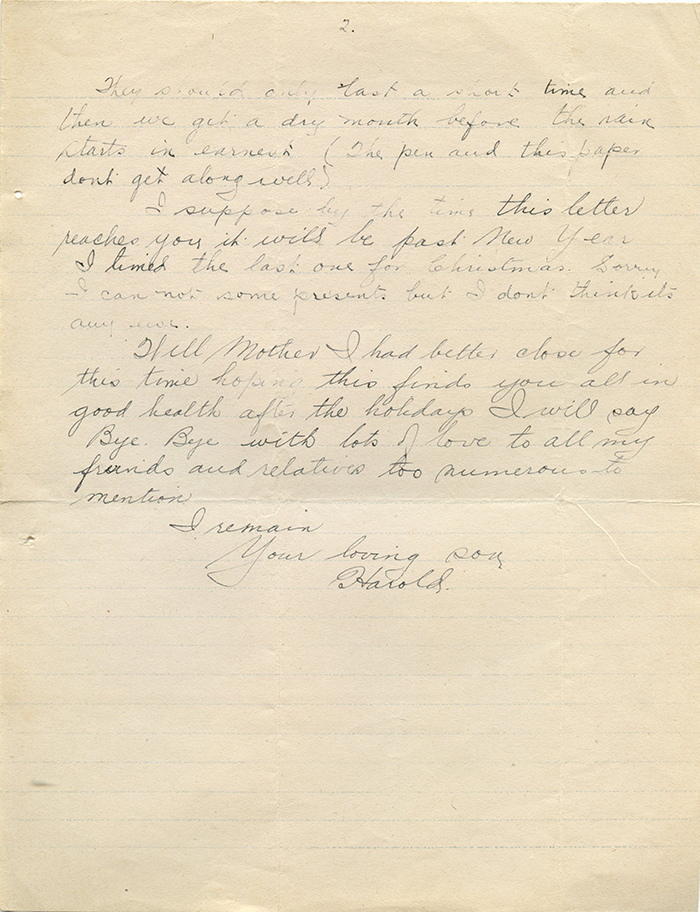 2.
They should only last a short time and
then we get a dry month before the rain
starts in earnest (The pen and this paper
dont get along well)
I suppose by the time this letter
reaches you it will be past New Year
I timed the last one for Christmas. Sorry
I can not some presents but I dont think its
any use.
Well Mother I had better close for
this time hoping this finds you all in
good health after the holidays I will say
Bye. Bye with lots of love to all my
friends and relatives too numerous to
mention
I remain
Your loving son
Harold.